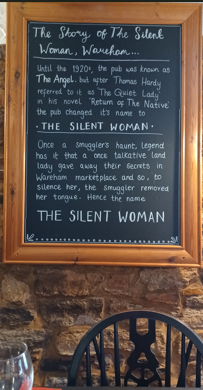 The Story of The Silent
Woman, Wareham...
Until the 1920s, the pub was known as
The Angel.. but after Thomas Hardy
referred to it as 'The Quiet Lady'
in his novel 'Return of The Native'
the pub changed it's name to
· THE SILENT WOMAN ·
Once a smuggler's haunt, legend
has it that a once talkative land
lady gave away their secrets in
Wareham marketplace and so, to
silence her, the smuggler removed
her tongue. Hence the name
THE SILENT WOMAN